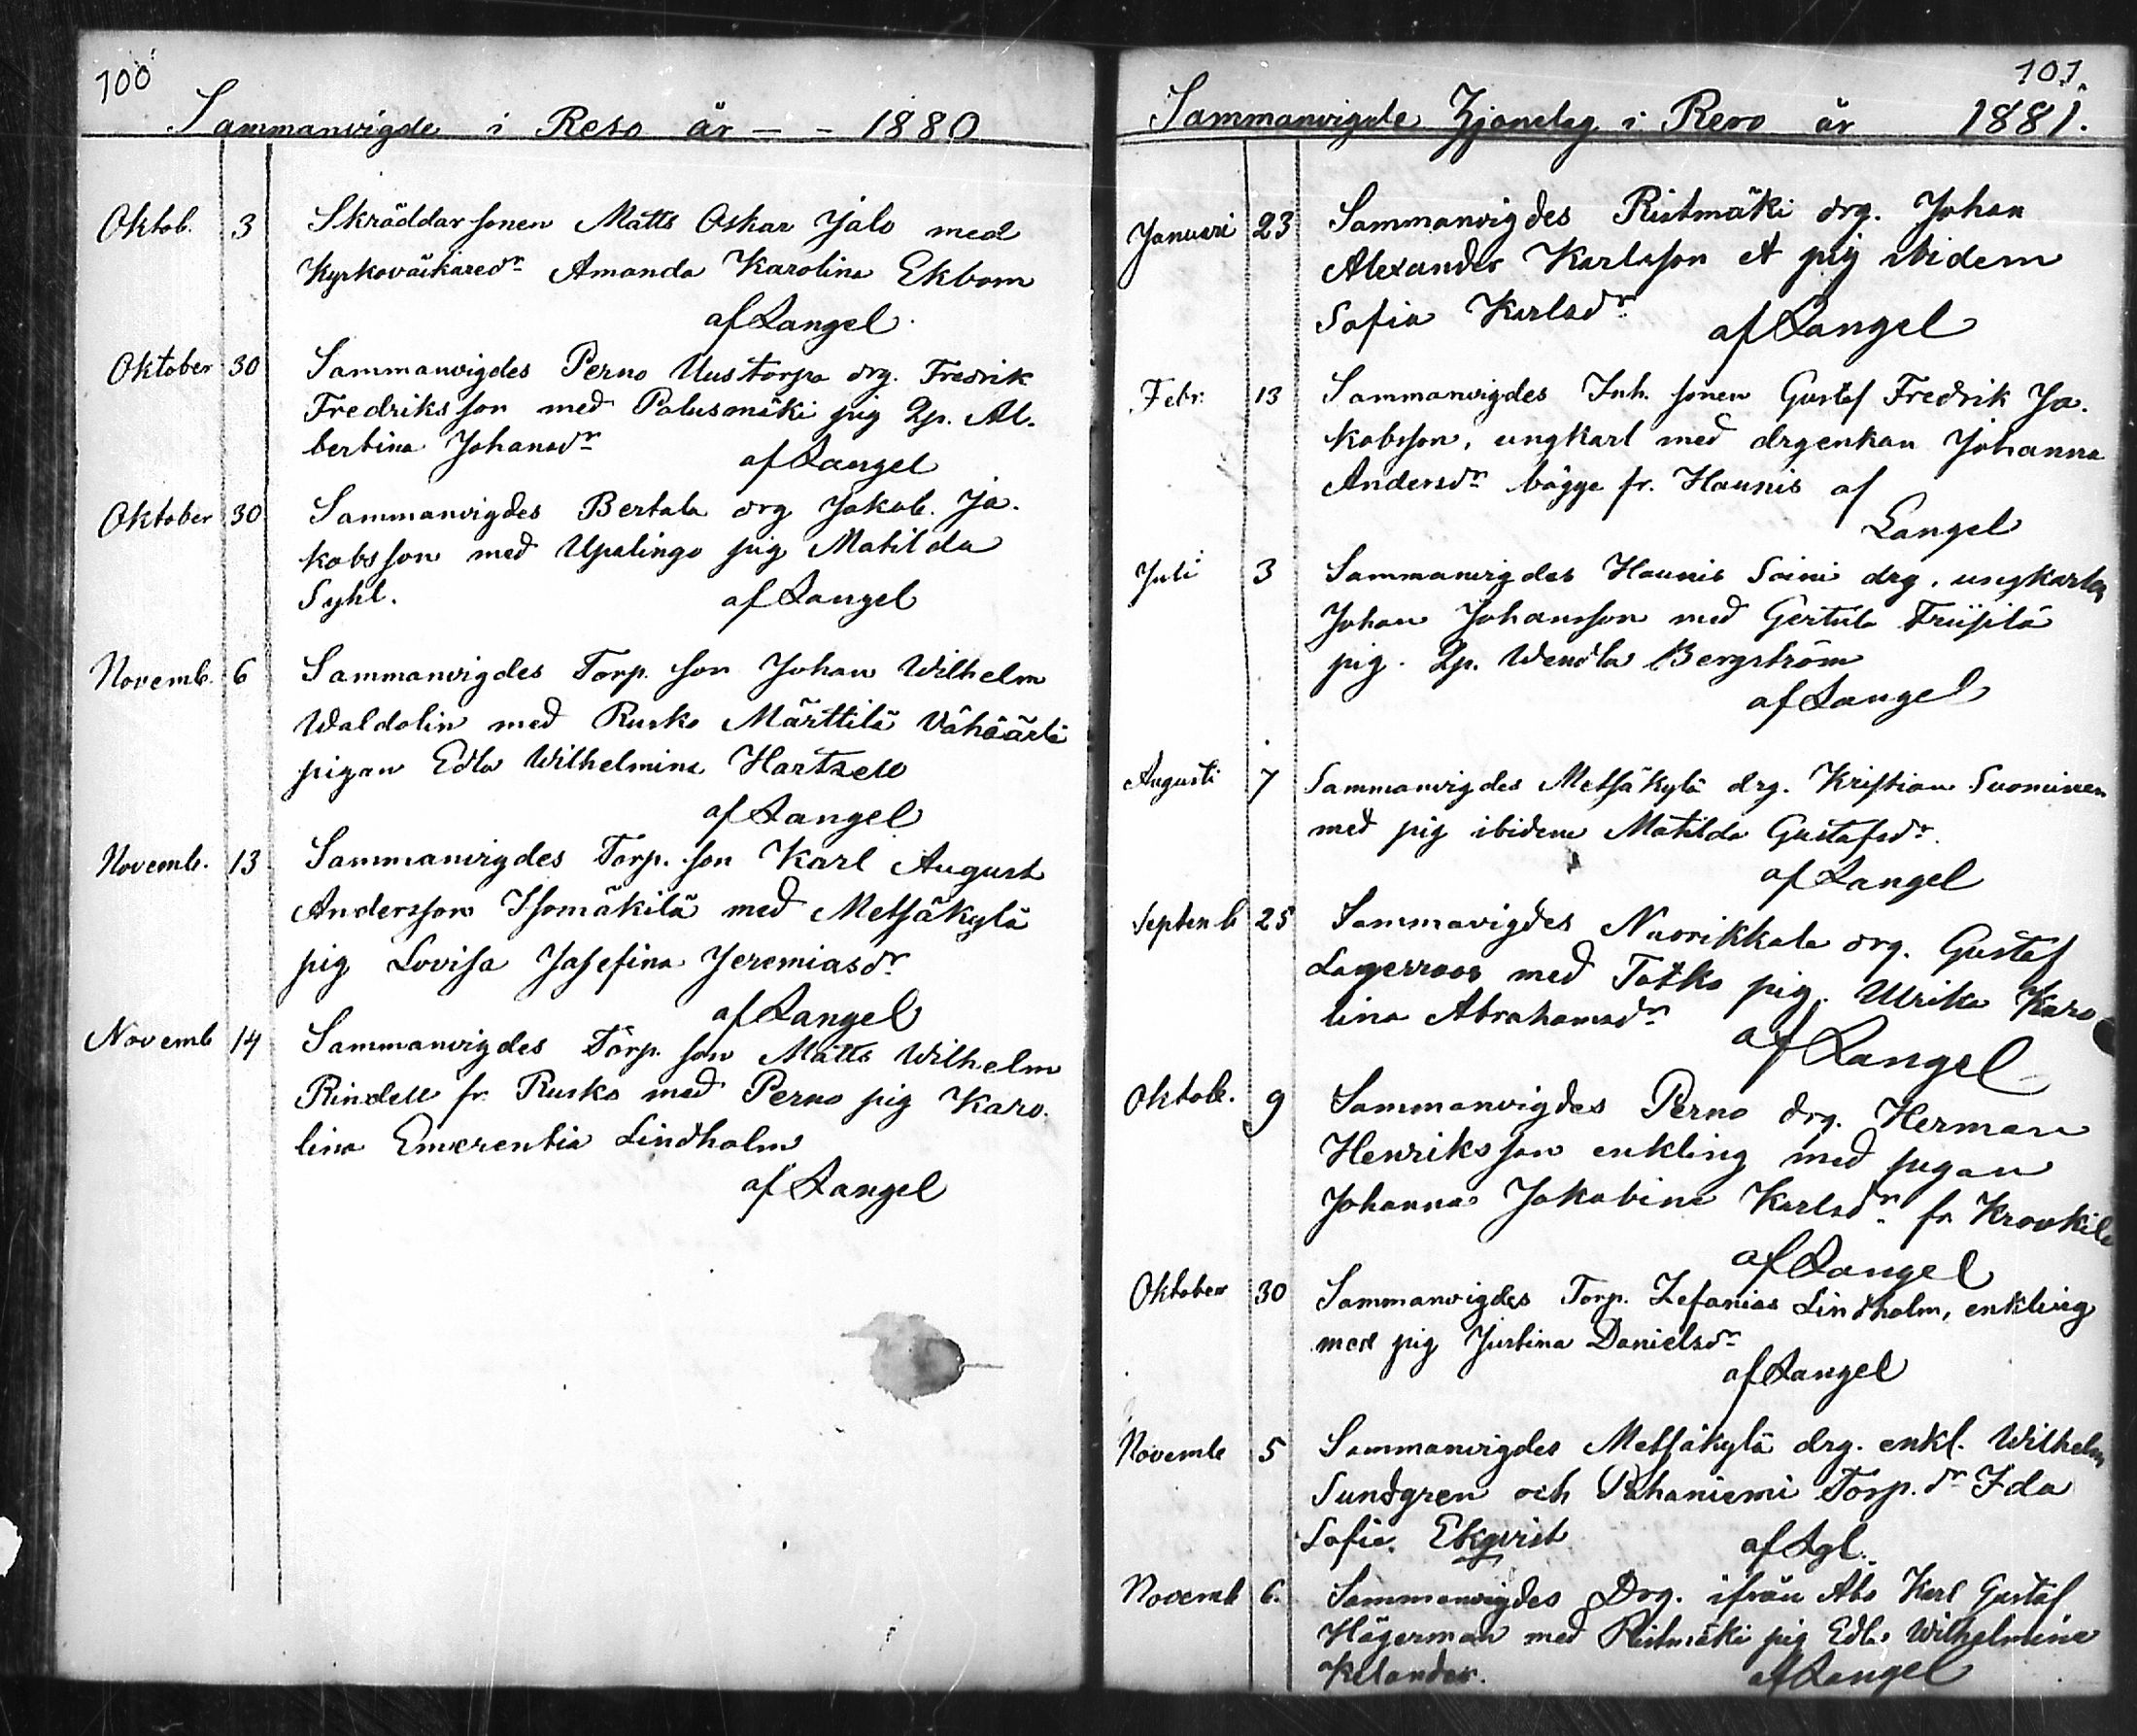 100
Sammanvigde i Reso år - - 1880
Oktob. 3 Skräddarsonen Matts Oskar Jalo med
Kyrkoväktaredr Amanda Karolina Ekbom
af Langel.
Oktober 30 Sammanvigdes Perno Uustorpa drg. Fredrik
Fredriksson med Palusmäki pig Qp. Al-
bertina Johansdr
af Langel
Oktober 30 Sammanvigdes Bertala drg Jakob. Ja-
kobsson med Upalingo pig Matilda
Syhl.
af Langel
Novemb. 6 Sammanvigdes Torp. son Johan Wilhelm
Waldolin med Rusko Märttilä Vähäärlä
pigan Edla Wilhelmina Hartzell
af Langel
Novemb. 13 Sammanvigdes Torp. son Karl August
Andersson Isomäkilä med Metsäkylä
pig Lovisa Josefina Jeremiasdr
af Langel
Novemb 14 Sammanvigdes Torp. son Matts Wilhelm
Rindell fr. Rusko med Perno pig Karo-
lina Emerentia Lindholm
af Langel
101.
Sammanvigde Hjonelag i Reso år 1881.
Januari 23 Sammanvigdes Ristmäki drg. Johan
Alexander Karlsson et pig ibidem
Sofia Karlsdr
af Langel
Febr. 13 Sammanvigdes Inh. sonen Gustaf Fredrik Ja-
kobsson, ungkarl med drgenkan Johanna
Andersdr bägge fr. Haunis af
Langel
Juli 3 Sammanvigdes Haunis Soini drg. ungkarlen
Johan Johansson med Gertula Friipilä
pig. Qp. Wendla Bergström
af Langel
Augusti 7 Sammanvigdes Metsäkylä drg. Kristian Suominen
med pig ibidem Matilda Gustafsdr.
af Langel
Septemb 25 Sammavigdes Nuorikkala drg. Gustaf
Lagerroos med Tatko pig. Ulrika Karo
lina Abrahamsdr
af Langel
Oktob. 9 Sammanvigdes Perno drg. Herman
Henriksson enkling med pigan
Johanna Jakobina Karlsdr. fr Krookila
af Langel
Oktober 30 Sammanvigdes Torp. Zefanias Lindholm, enkling
med pig Justina Danielsdr
af Langel
Novemb 5 Sammanvigdes Metsäkylä drg. enkl. Wilhelm
Sundgren och Pahaniemi Torp. dr Ida
Sofia Ekqvist
af Lgl.
Novemb 6. Sammanvigdes Drg. ifrån Abo Karl Gustaf
Hägerman med Ristmäki pig Edla Wilhelmina
Kelander.
af Langel